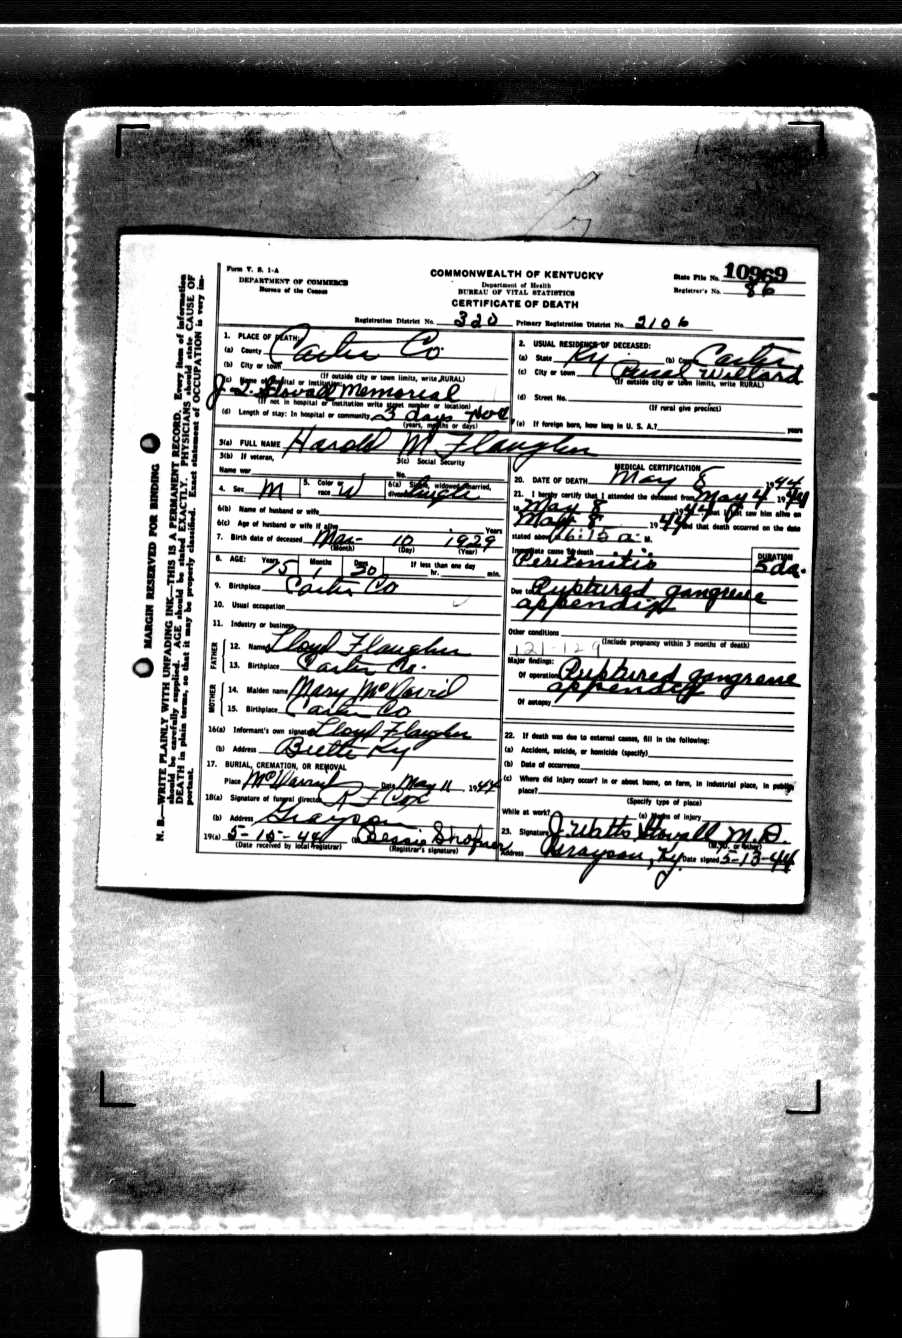 Form V. S. 1-A
DEPARTMENT OF COMMERCE
Bureau of the Census
COMMONWEALTH OF KENTUCKY
Department of Health
BUREAU OF VITAL STATISTICS
CERTIFICATE OF DEATH
State File No. 10969
Registrar's No. 86
Registration District No. 320 Primary Registration District No. 2106
MARGIN RESERVED FOR BINDING
N. B.—WRITE PLAINLY WITH UNFADING INK—THIS IS A PERMANENT RECORD. Every item of information
should be carefully supplied. AGE should be stated EXACTLY. PHYSICIANS should state CAUSE OF
DEATH in plain terms, so that it may be properly classified. Exact statement of OCCUPATION is very im-
portant.
1. PLACE OF DEATH:
(a) County Carter Co.
(b) City or town
(If outside city or town limits, write RURAL)
(c) Name of hospital or institution:
J. Q. Stovall Memorial
(If not in hospital or institution write street number or location)
(d) Length of stay: In hospital or community 3 days
(years, months or days)
2. USUAL RESIDENCE OF DECEASED:
(a) State Ky (b) County Carter
(c) City or town Rural Willard
(If outside city or town limits, write RURAL)
(d) Street No.
(If rural give precinct)
(e) If foreign born, how long in U. S. A.? years
3(a) FULL NAME Harold M Flaugher
3(b) If veteran,
Name war
3(c) Social Security
No.
4. Sex M 5. Color or race W 6(a) Single, widowed, married, divorced Single
6(b) Name of husband or wife
6(c) Age of husband or wife if alive Years
7. Birth date of deceased Mar- 10 1929
(Month) (Day) (Year)
8. AGE: Years 15 Months 1 Days 30 If less than one day
hr. min.
9. Birthplace Carter Co
10. Usual occupation
11. Industry or business
FATHER
12. Name Lloyd Flaugher
13. Birthplace Carter Co.
MOTHER
14. Maiden name Mary McDavid
15. Birthplace Carter Co
16(a) Informant's own signature Lloyd Flaugher
(b) Address Ky
17. BURIAL, CREMATION, OR REMOVAL
Place McDavid Date May 11 1944
18(a) Signature of funeral director R F Cox
(b) Address Grayson
19(a) 5-15-44 (b) Bessie
(Date received by local registrar) (Registrar's signature)
MEDICAL CERTIFICATION
20. DATE OF DEATH May 8 1944
21. I hereby certify that I attended the deceased from May 4, 1944
to May 8 1944, that I last saw him alive on
May 8 1944 and that death occurred on the date
stated above at 6:15 a. M.
Immediate cause of death
Peritonitis
DURATION
5 da.
Due to Ruptured gangrene
appendix
Other conditions
(Include pregnancy within 3 months of death)
121-129
Major findings:
Of operation Ruptured gangrene
appendix
Of autopsy
22. If death was due to external causes, fill in the following:
(a) Accident, suicide, or homicide (specify)
(b) Date of occurrence
(c) Where did injury occur? in or about home, on farm, in industrial place, in public
place?
(Specify type of place)
While at work? (e) Means of injury
23. Signature J. Watts Stovall M.D.
(M.D. or other)
Address Grayson, Ky. Date signed 5-13-44